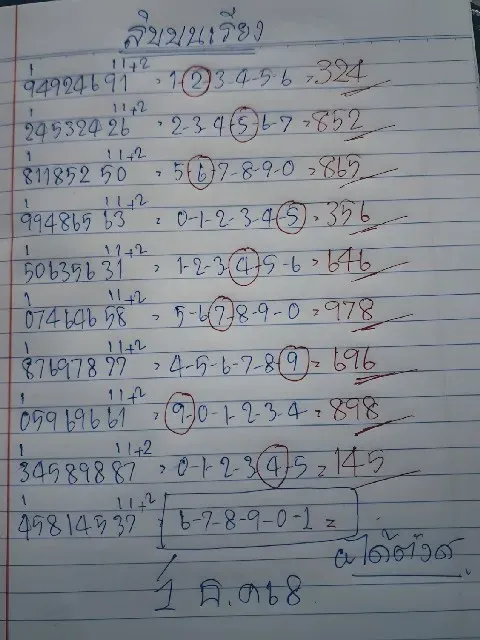 สิบบนเรียง
1 11+2
94924691 = 1-2-3-4-5-6 = 324
1 11+2
24532426 = 2-3-4-5-6-7 = 852
1 11+2
81185250 = 5-6-7-8-9-0 = 865
1 11+2
99486563 = 0-1-2-3-4-5 = 356
1 11+2
50635631 = 1-2-3-4-5-6 = 646
1 11+2
07464658 = 5-6-7-8-9-0 = 978
1 11+2
87697877 = 4-5-6-7-8-9 = 696
1 11+2
05969661 = 9-0-1-2-3-4 = 898
1 11+2
34589887 = 0-1-2-3-4-5 = 145
1 11+2
45814537 6-7-8-9-0-1 =
1 ธ.ค 68